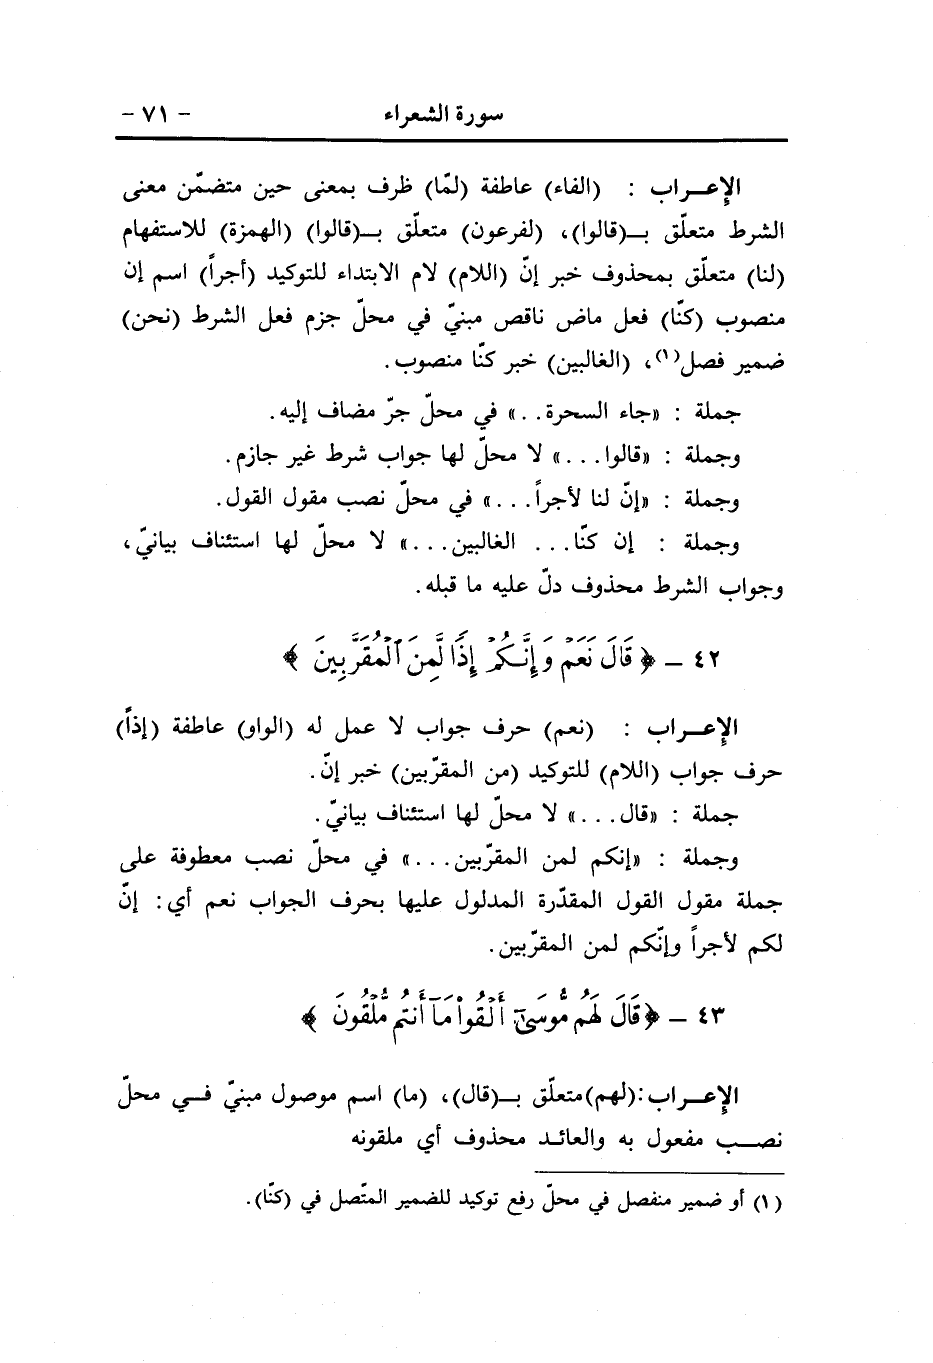 سورة الشعراء - ٧١ -
الإعــراب : (الفاء) عاطفة (لمّا) ظرف بمعنى حين متضمّن معنى
الشرط متعلّق بـ(قالوا)، (لفرعون) متعلّق بـ(قالوا) (الهمزة) للاستفهام
(لنا) متعلّق بمحذوف خبر إنّ (اللام) لام الابتداء للتوكيد (أجراً) اسم إن
منصوب (كنّا) فعل ماض ناقص مبنيّ في محلّ جزم فعل الشرط (نحن)
ضمير فصل(١)، (الغالبين) خبر كنّا منصوب.
جملة : «جاء السحرة..» في محلّ جرّ مضاف إليه.
وجملة : «قالوا...» لا محلّ لها جواب شرط غير جازم.
وجملة : «إنّ لنا لأجراً...» في محلّ نصب مقول القول.
وجملة : إن كنّا... الغالبين...» لا محلّ لها استئناف بيانيّ،
وجواب الشرط محذوف دلّ عليه ما قبله.
٤٢ - ﴿قَالَ نَعَمۡ وَإِنَّكُمۡ إِذٗا لَّمِنَ ٱلۡمُقَرَّبِينَ﴾
الإعــراب : (نعم) حرف جواب لا عمل له (الواو) عاطفة (إذاً)
حرف جواب (اللام) للتوكيد (من المقرّبين) خبر إنّ.
جملة : «قال...» لا محلّ لها استئناف بيانيّ.
وجملة : «إنكم لمن المقرّبين...» في محلّ نصب معطوفة على
جملة مقول القول المقدّرة المدلول عليها بحرف الجواب نعم أي: إنّ
لكم لأجراً وإنّكم لمن المقرّبين.
٤٣ - ﴿قَالَ لَهُم مُّوسَىٰٓ أَلۡقُواْ مَآ أَنتُم مُّلۡقُونَ﴾
الإعــراب:(لهم)متعلّق بـ(قال)، (ما) اسم موصول مبنيّ فـي محلّ
نصـب مفعول به والعائـد محذوف أي ملقونه
(١) أو ضمير منفصل في محلّ رفع توكيد للضمير المتّصل في (كنّا).